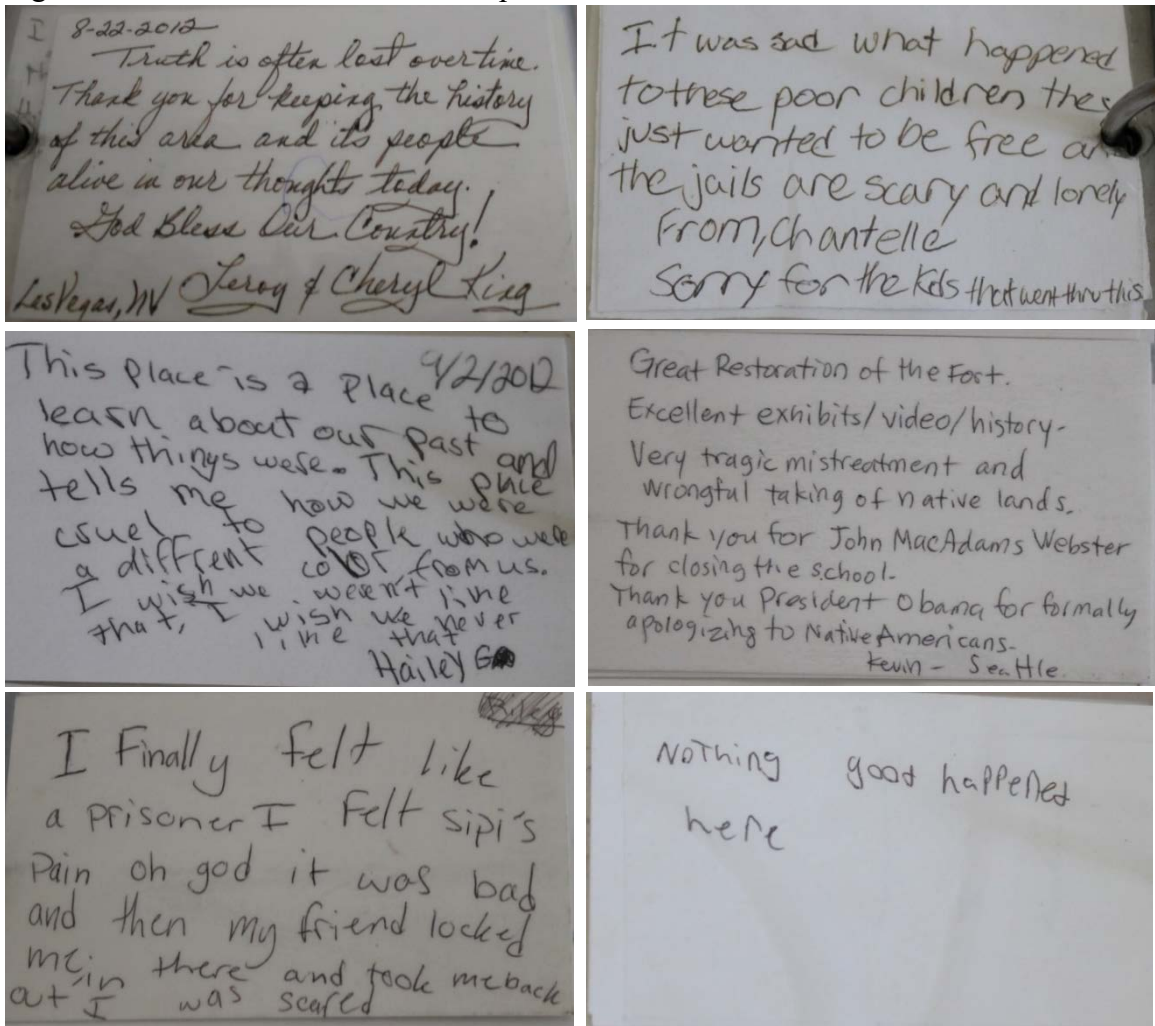 8-22-2012
Truth is often lost over time.
Thank you for keeping the history
of this area and its people
alive in our thoughts today.
God Bless Our Country!
Las Vegas, NV Leroy & Cheryl King
I.t was sad what happened
to these poor children they
just wanted to be free an
the jails are scary and lonely
From, Chantelle
Sorry for the kids that went thru this
This place is a place 9/2/2012
to learn about our past and
how things were. This place
tells me how we were
cruel to people who were
a diffrent color from us.
I wish we weren't like
that, I wish we never
like that
Hailey G
Great Restoration of the Fort.
Excellent exhibits/video/history-
Very tragic mistreatment and
wrongful taking of native lands.
Thank you for John MacAdams Webster
for closing the school.
Thank you President Obama for formally
apologizing to Native Americans.
Kevin - Seattle.
I Finally felt like
a prisoner I Felt sipi's
Pain oh god it was bad
and then my friend locked
me in there and took me back
out I was scared
Nothing good happened
here